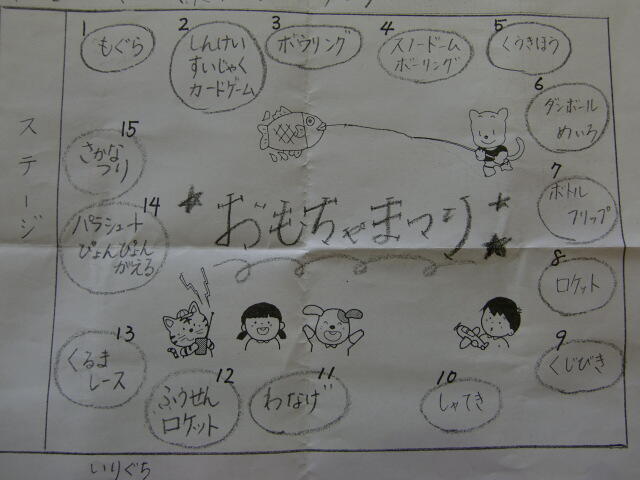 1
もぐら
2
しんけい
すいじゃく
カードゲーム
3
ボウリング
4
スノードーム
ボーリング
5
くうきほう
6
ダンボール
めいろ
7
ボトル
フリップ
8
ロケット
9
くじびき
10
しゃてき
11
わなげ
12
ふうせん
ロケット
13
くるま
レース
14
パラシュート
ぴょんぴょん
がえる
15
さかな
つり
おもちゃまつり
ステージ
いりぐち